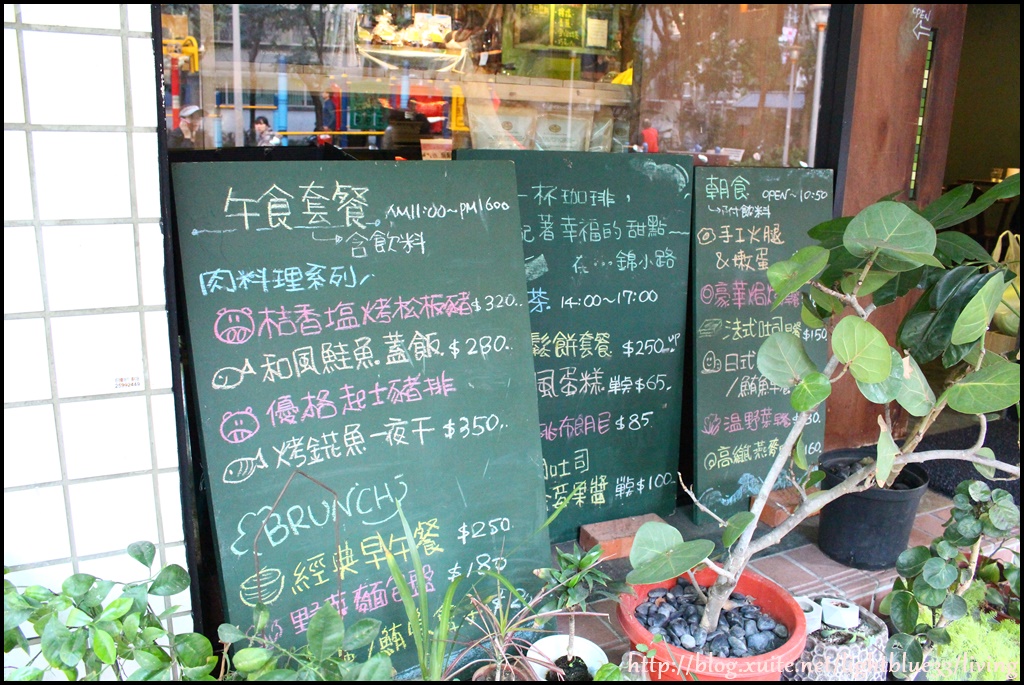 午食套餐 AM11:00~PM1600
含飲料
肉料理系列
桔香塩烤松板豬 $320..
和風鮭魚蓋飯 $280..
優格起士豬排
烤錵魚一夜干 $350..
BRUNCH
經典早午餐 $250
野菜麵包盤 $180
一杯珈琲，
記著幸福的甜點~
在...錦小路
茶 14:00~17:00
鬆餅套餐 $250 up
風蛋糕 單$65.
布朗尼 $85
吐司
果醬 單$100
朝食 OPEN~10:50
附飲料
手工火腿
&嫩蛋
豪華焗
法式吐司 $150
日式
/鮪魚
温野菜
高纖燕麥 160
OPEN
http://blog.xuite.net